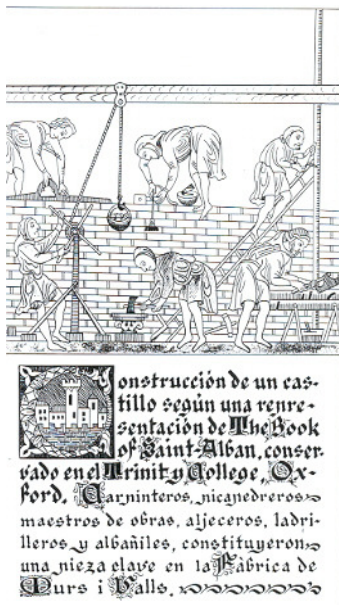 Construcción de un cas-
tillo según una repre-
sentación de The Book
of Saint-Alban, conser-
vado en el Trinity College, Ox-
ford. Carpinteros, picapedreros
maestros de obras, aljeceros, ladri-
lleros y albañiles, constituyeron
una pieza clave en la Fàbrica de
Murs i Valls.